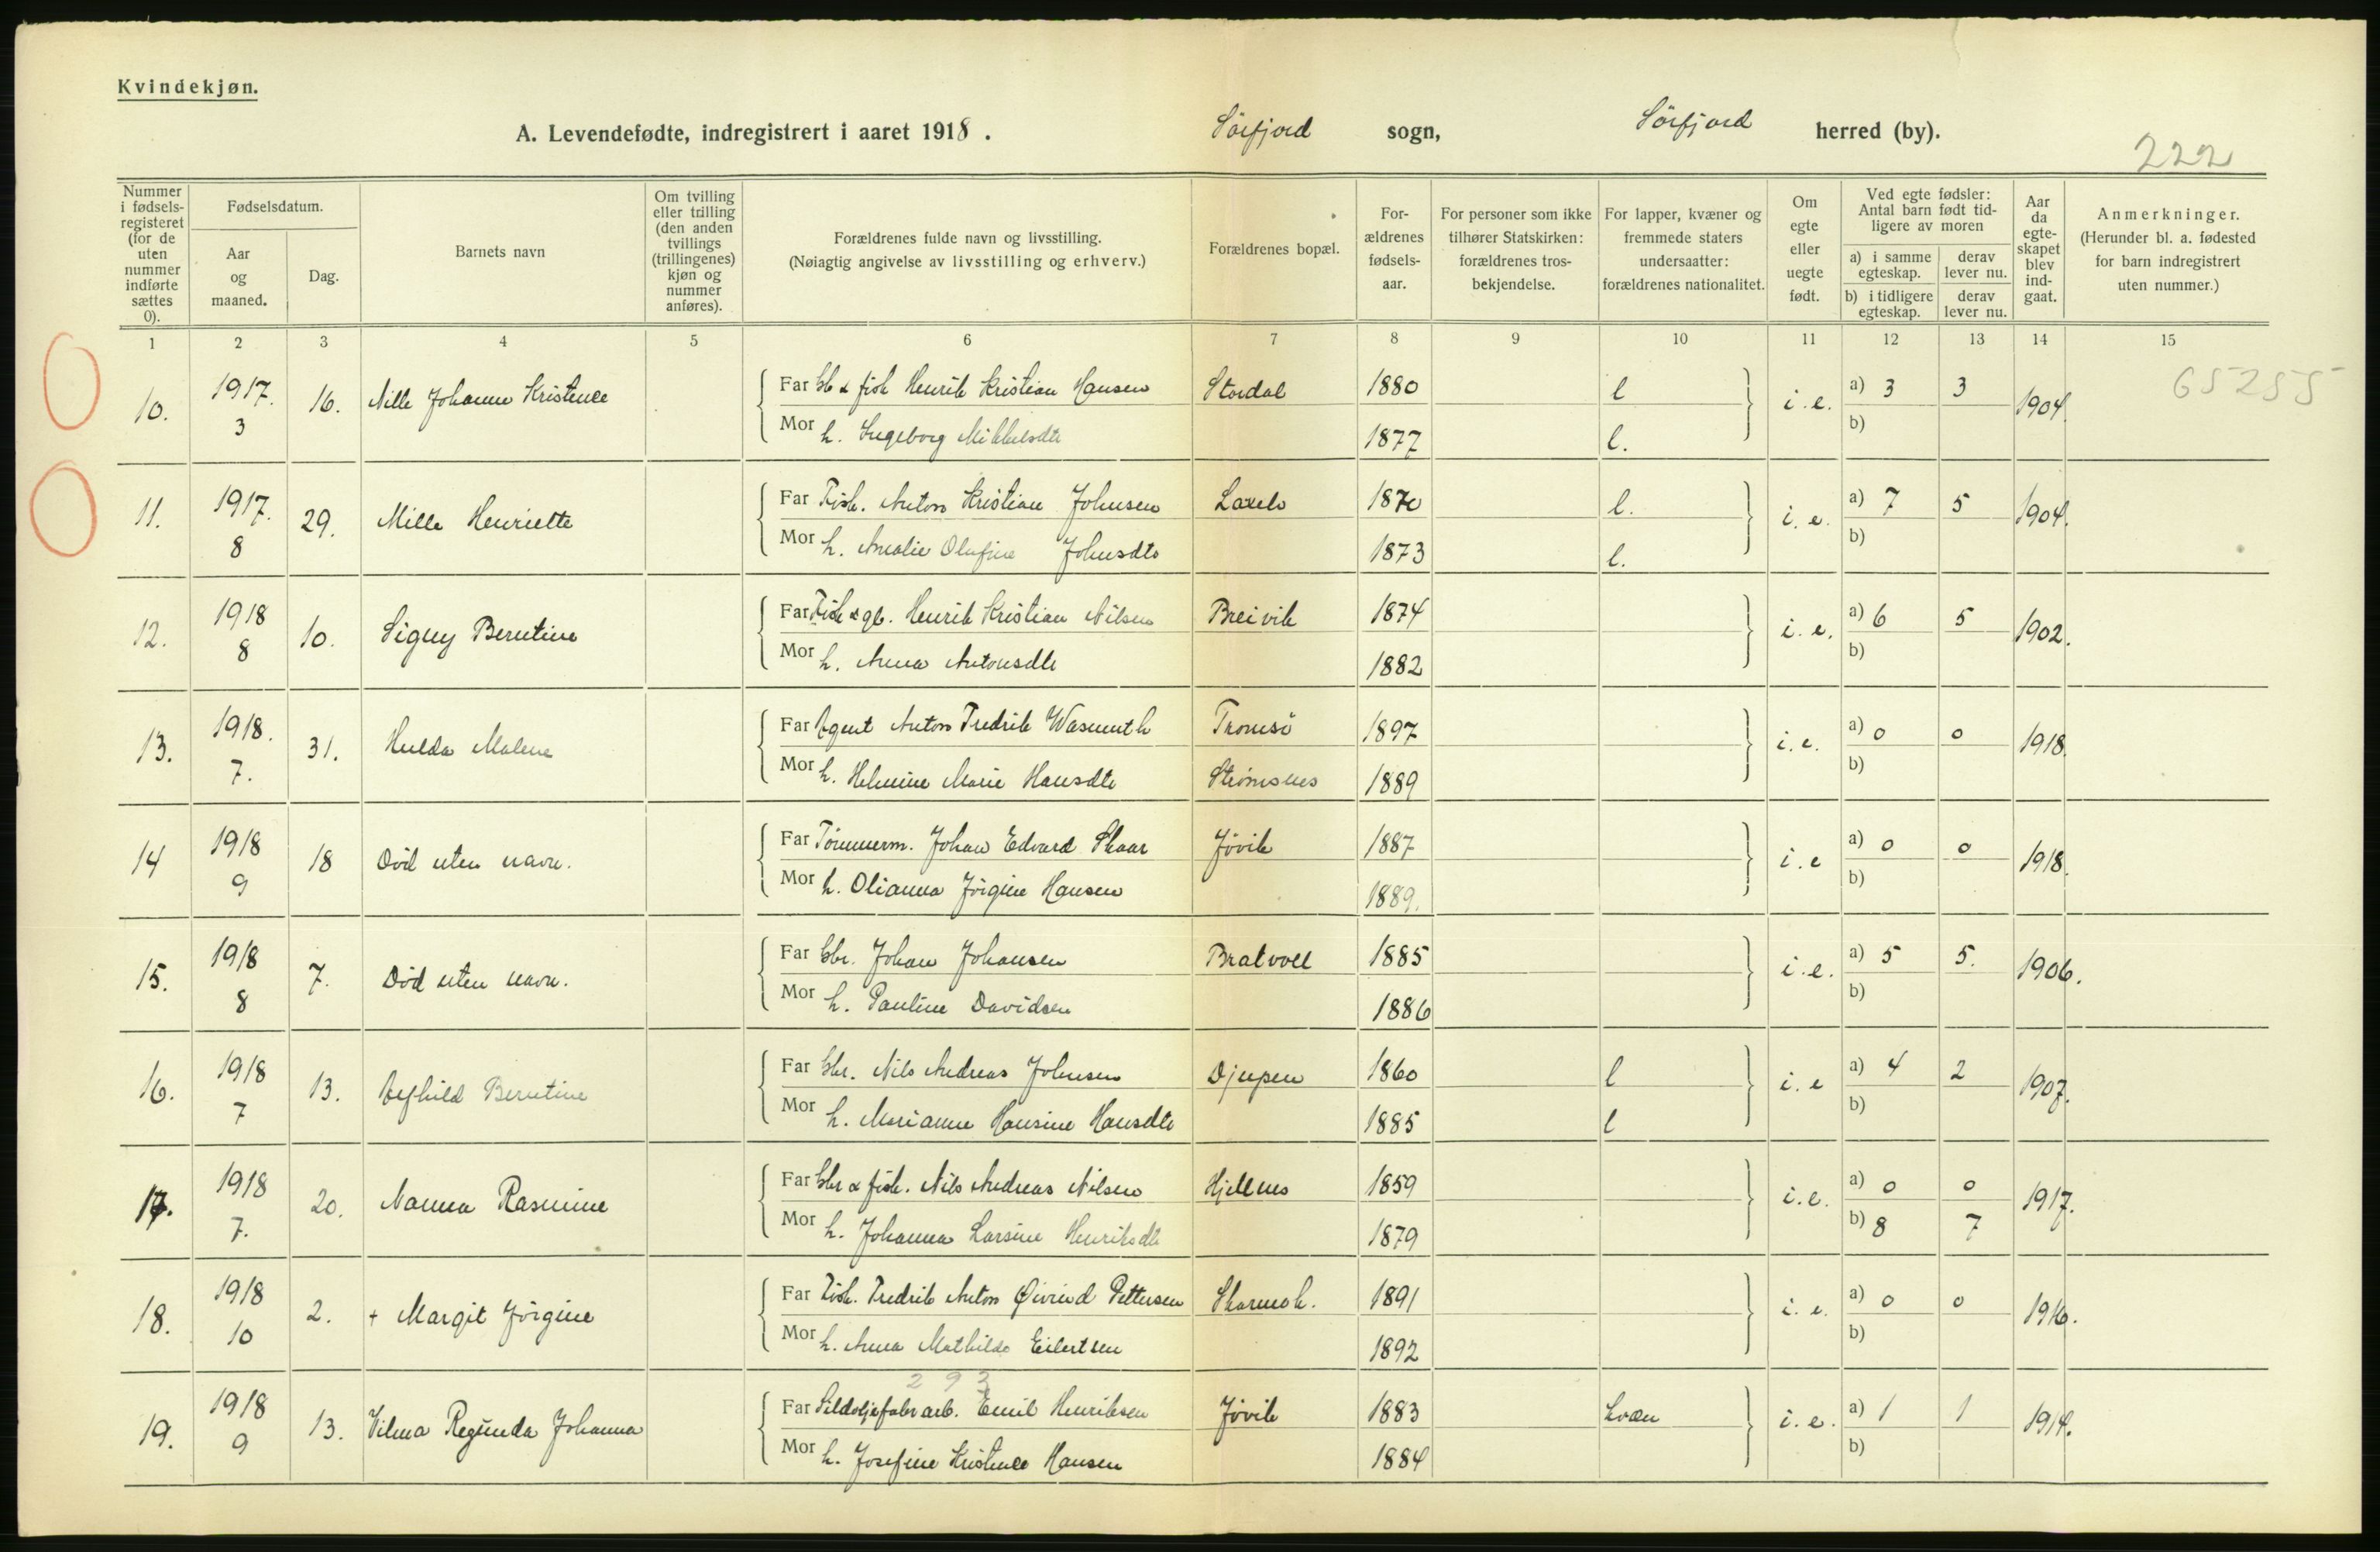 Kvindekjøn.
A. Levendefødte, indregistrert i aaret 1918. Sörfjord sogn, Sörfjord herred (by).
222
Nummer i fødselsregisteret (for de uten nummer indførte sættes 0).
Fødselsdatum.
Aar og maaned.
Dag.
Barnets navn
Om tvilling eller trilling (den anden tvillings (trillingenes) kjøn og nummer anføres).
Forældrenes fulde navn og livsstilling.
(Nøiagtig angivelse av livsstilling og erhverv.)
Forældrenes bopæl.
Forældrenes fødselsaar.
For personer som ikke tilhører Statskirken: forældrenes trosbekjendelse.
For lapper, kvæner og fremmede staters undersaatter: forældrenes nationalitet.
Om egte eller uegte født.
Ved egte fødsler: Antal barn født tidligere av moren
a) i samme egteskap. derav lever nu.
b) i tidligere egteskap. derav lever nu.
Aar da egteskapet blev indgaat.
Anmerkninger.
(Herunder bl. a. fødested for barn indregistrert uten nummer.)
1 2 3 4 5 6 7 8 9 10 11 12 13 14 15
65255
10. 1917. 3 16. Nille Johanne Kristence Far Gb & fisk Henrik Kristian Hansen Stordal 1880 l i.e. a) 3 3 1904.
Mor h. Ingeborg Mikkelsdtr 1877 l. b)
11. 1917. 8 29. Mille Henriette Far Fisk. Anton Kristian Johnsen Laxelv 1870 l. i.e. a) 7 5 1904.
Mor h. Amalie Olufine Johnsdtr 1873 l. b)
12. 1918 8 10. Signy Berntine Far Fisk & gb. Henrik Kristian Nilsen Breivik 1874 i.e. a) 6 5 1902.
Mor h. Anna Antonsdtr 1882 b)
13. 1918. 7. 31. Hulda Malene Far Agent Anton Fredrik Wasmuth Tromsö 1897 i.e. a) 0 0 1918.
Mor h. Helmine Marie Hansdtr Strömsnes 1889 b)
14 1918 9 18 Död uten navn. Far Tömmerm. Johan Edvard Skaar Jövik 1887 i.e a) 0 0 1918.
Mor h. Olianna Jörgine Hansen 1889. b)
15. 1918 8 7. Död uten navn. Far Gbr. Johan Johansen Bratvoll 1885 i.e. a) 5 5. 1906.
Mor h. Pauline Davidsen 1886 b)
16. 1918 7 13. Berntine Far Gbr. Nils Andreas Johnsen Djupen 1860 l i.e a) 4 2 1907.
Mor h. Marianne Hansine Hansdtr 1885 l b)
17. 1918 7. 20. Nanna Rasmine Far Gbr & fisk. Nils Andreas Nilsen Hjellnes 1859 i.e. a) 0 0 1917.
Mor h. Johanna Larsine Henriksdtr 1879 b) 8 7
18. 1918 10 2. + Margit Jörgine Far Fisk. Fredrik Anton Öivind Pettersen Skarmok. 1891 i.e. a) 0 0 1916.
Mor h. Anna Mathilde Eilertsen 1892 b)
293
19. 1918 9 13. Vilma Regünda Johanna Far Sildoljefabrarb. Emil Henriksen Jövik 1883 kvæn i.e. a) 1 1 1914.
Mor h. Josefine Kristence Hansen 1884 b)